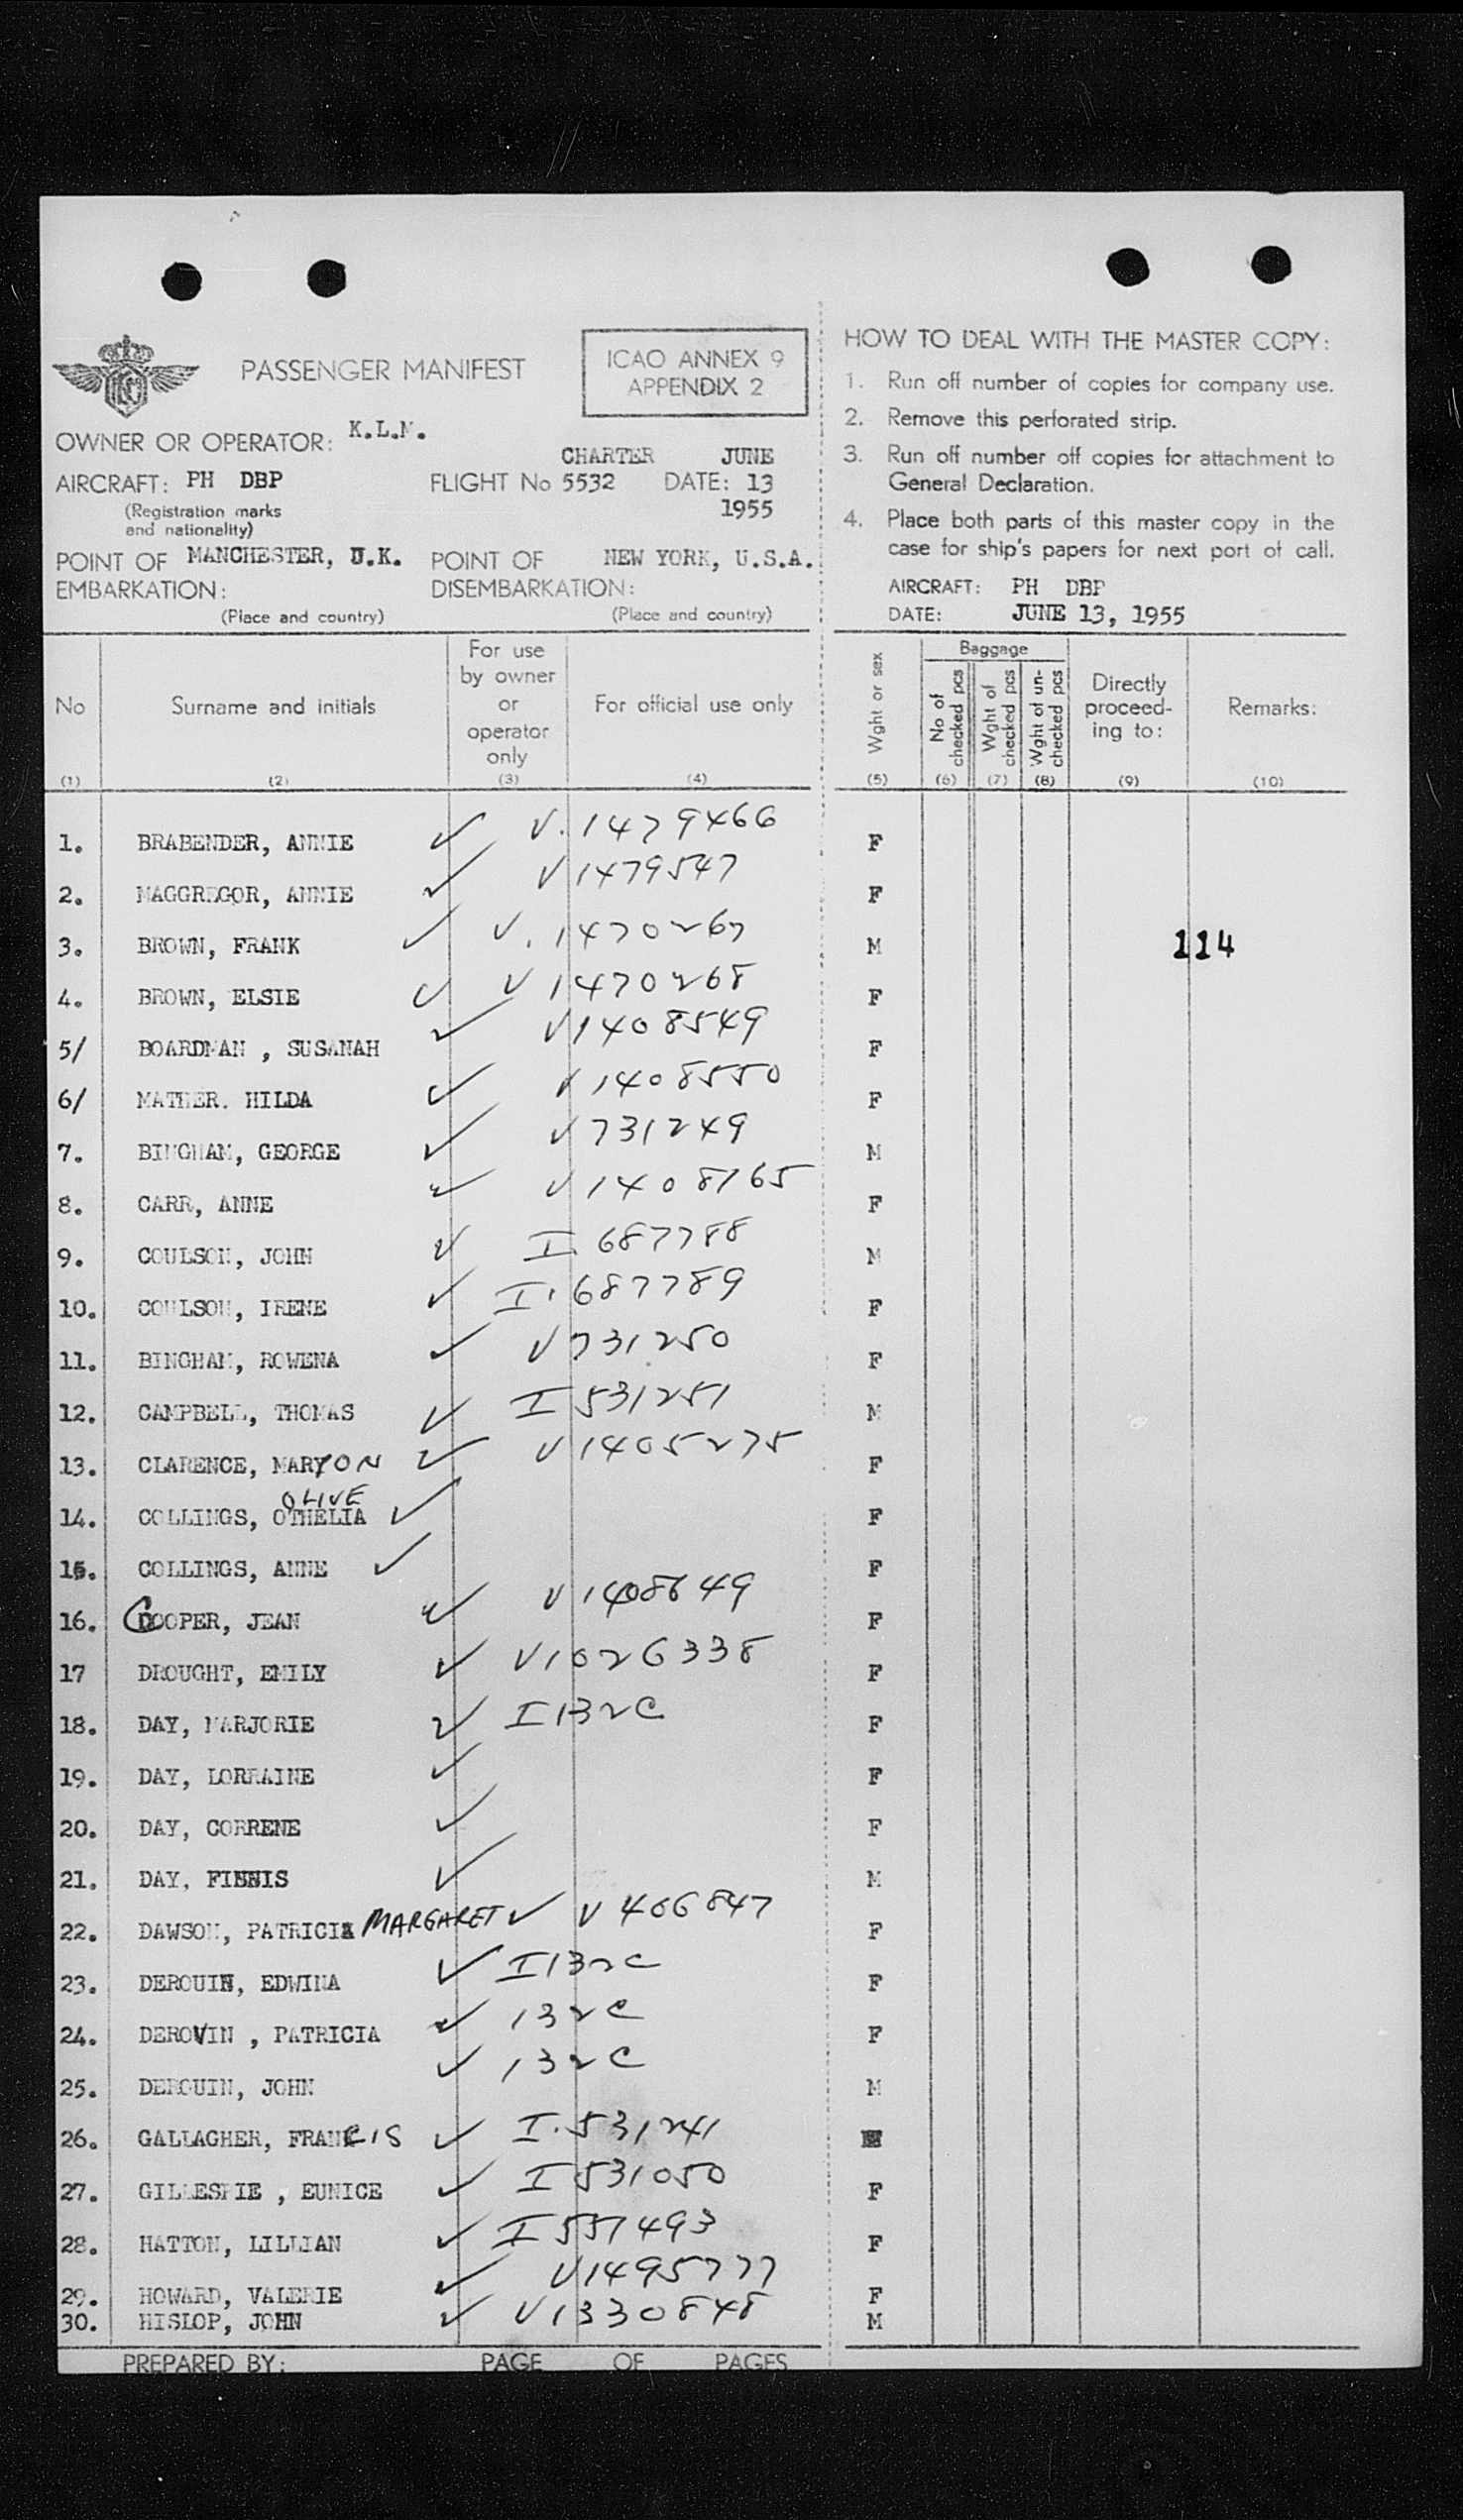 PASSENGER MANIFEST
ICAO ANNEX 9
APPENDIX 2
OWNER OR OPERATOR: K.L.M.
AIRCRAFT: PH DBP
(Registration marks
and nationality)
CHARTER
FLIGHT No 5532
JUNE
DATE: 13
1955
POINT OF MANCHESTER, U.K.
EMBARKATION:
(Place and country)
POINT OF NEW YORK, U.S.A.
DISEMBARKATION:
(Place and country)
HOW TO DEAL WITH THE MASTER COPY:
1. Run off number of copies for company use.
2. Remove this perforated strip.
3. Run off number off copies for attachment to
General Declaration.
4. Place both parts of this master copy in the
case for ship's papers for next port of call.
AIRCRAFT: PH DBP
DATE: JUNE 13, 1955
No
(1)
Surname and initials
(2)
For use
by owner
or
operator
only
(3)
For official use only
(4)
Wght or sex
(5)
Baggage
No of
checked pcs
(6)
Wght of
checked pcs
(7)
Wght of un-
checked pcs
(8)
Directly
proceed-
ing to:
(9)
Remarks:
(10)
1. BRABENDER, ANNIE ✓ V. 1479466 F
2. MAGGREGOR, ANNIE ✓ V 1479547 F
3. BROWN, FRANK ✓ V. 1470267 M 114
4. BROWN, ELSIE ✓ V 1470268 F
5/ BOARDMAN , SUSANAH ✓ V 1408549 F
6/ MATHER. HILDA ✓ V 1408550 F
7. BINGHAM, GEORGE ✓ V 731249 M
8. CARR, ANNE ✓ V 1408765 F
9. COULSON, JOHN ✓ I. 687788 M
10. COULSON, IRENE ✓ I. 687789 F
11. BINGHAM, ROWENA ✓ V 731250 F
12. CAMPBELL, THOMAS ✓ I 531251 M
13. CLARENCE, MARYON ✓ V 1405275 F
OLIVE
14. COLLINGS, OTHELIA ✓ F
15. COLLINGS, ANNE ✓ F
16. COOPER, JEAN ✓ V 1408649 F
17 DROUGHT, EMILY ✓ V 1026338 F
18. DAY, MARJORIE ✓ I 132C F
19. DAY, LORRAINE ✓ F
20. DAY, CORRENE ✓ F
21. DAY, FINNIS ✓ M
22. DAWSON, PATRICIA MARGARET ✓ V 466847 F
23. DEROUIN, EDWINA ✓ I 132C F
24. DEROVIN , PATRICIA ✓ 132C F
25. DEROUIN, JOHN ✓ 132C M
26. GALLAGHER, FRANCIS ✓ I. 531241
27. GILLESPIE , EUNICE ✓ I 531050 F
28. HATTON, LILLIAN ✓ I 557493 F
29. HOWARD, VALERIE ✓ V 1495777 F
30. HISLOP, JOHN ✓ V 1330848 M
PREPARED BY: PAGE OF PAGES